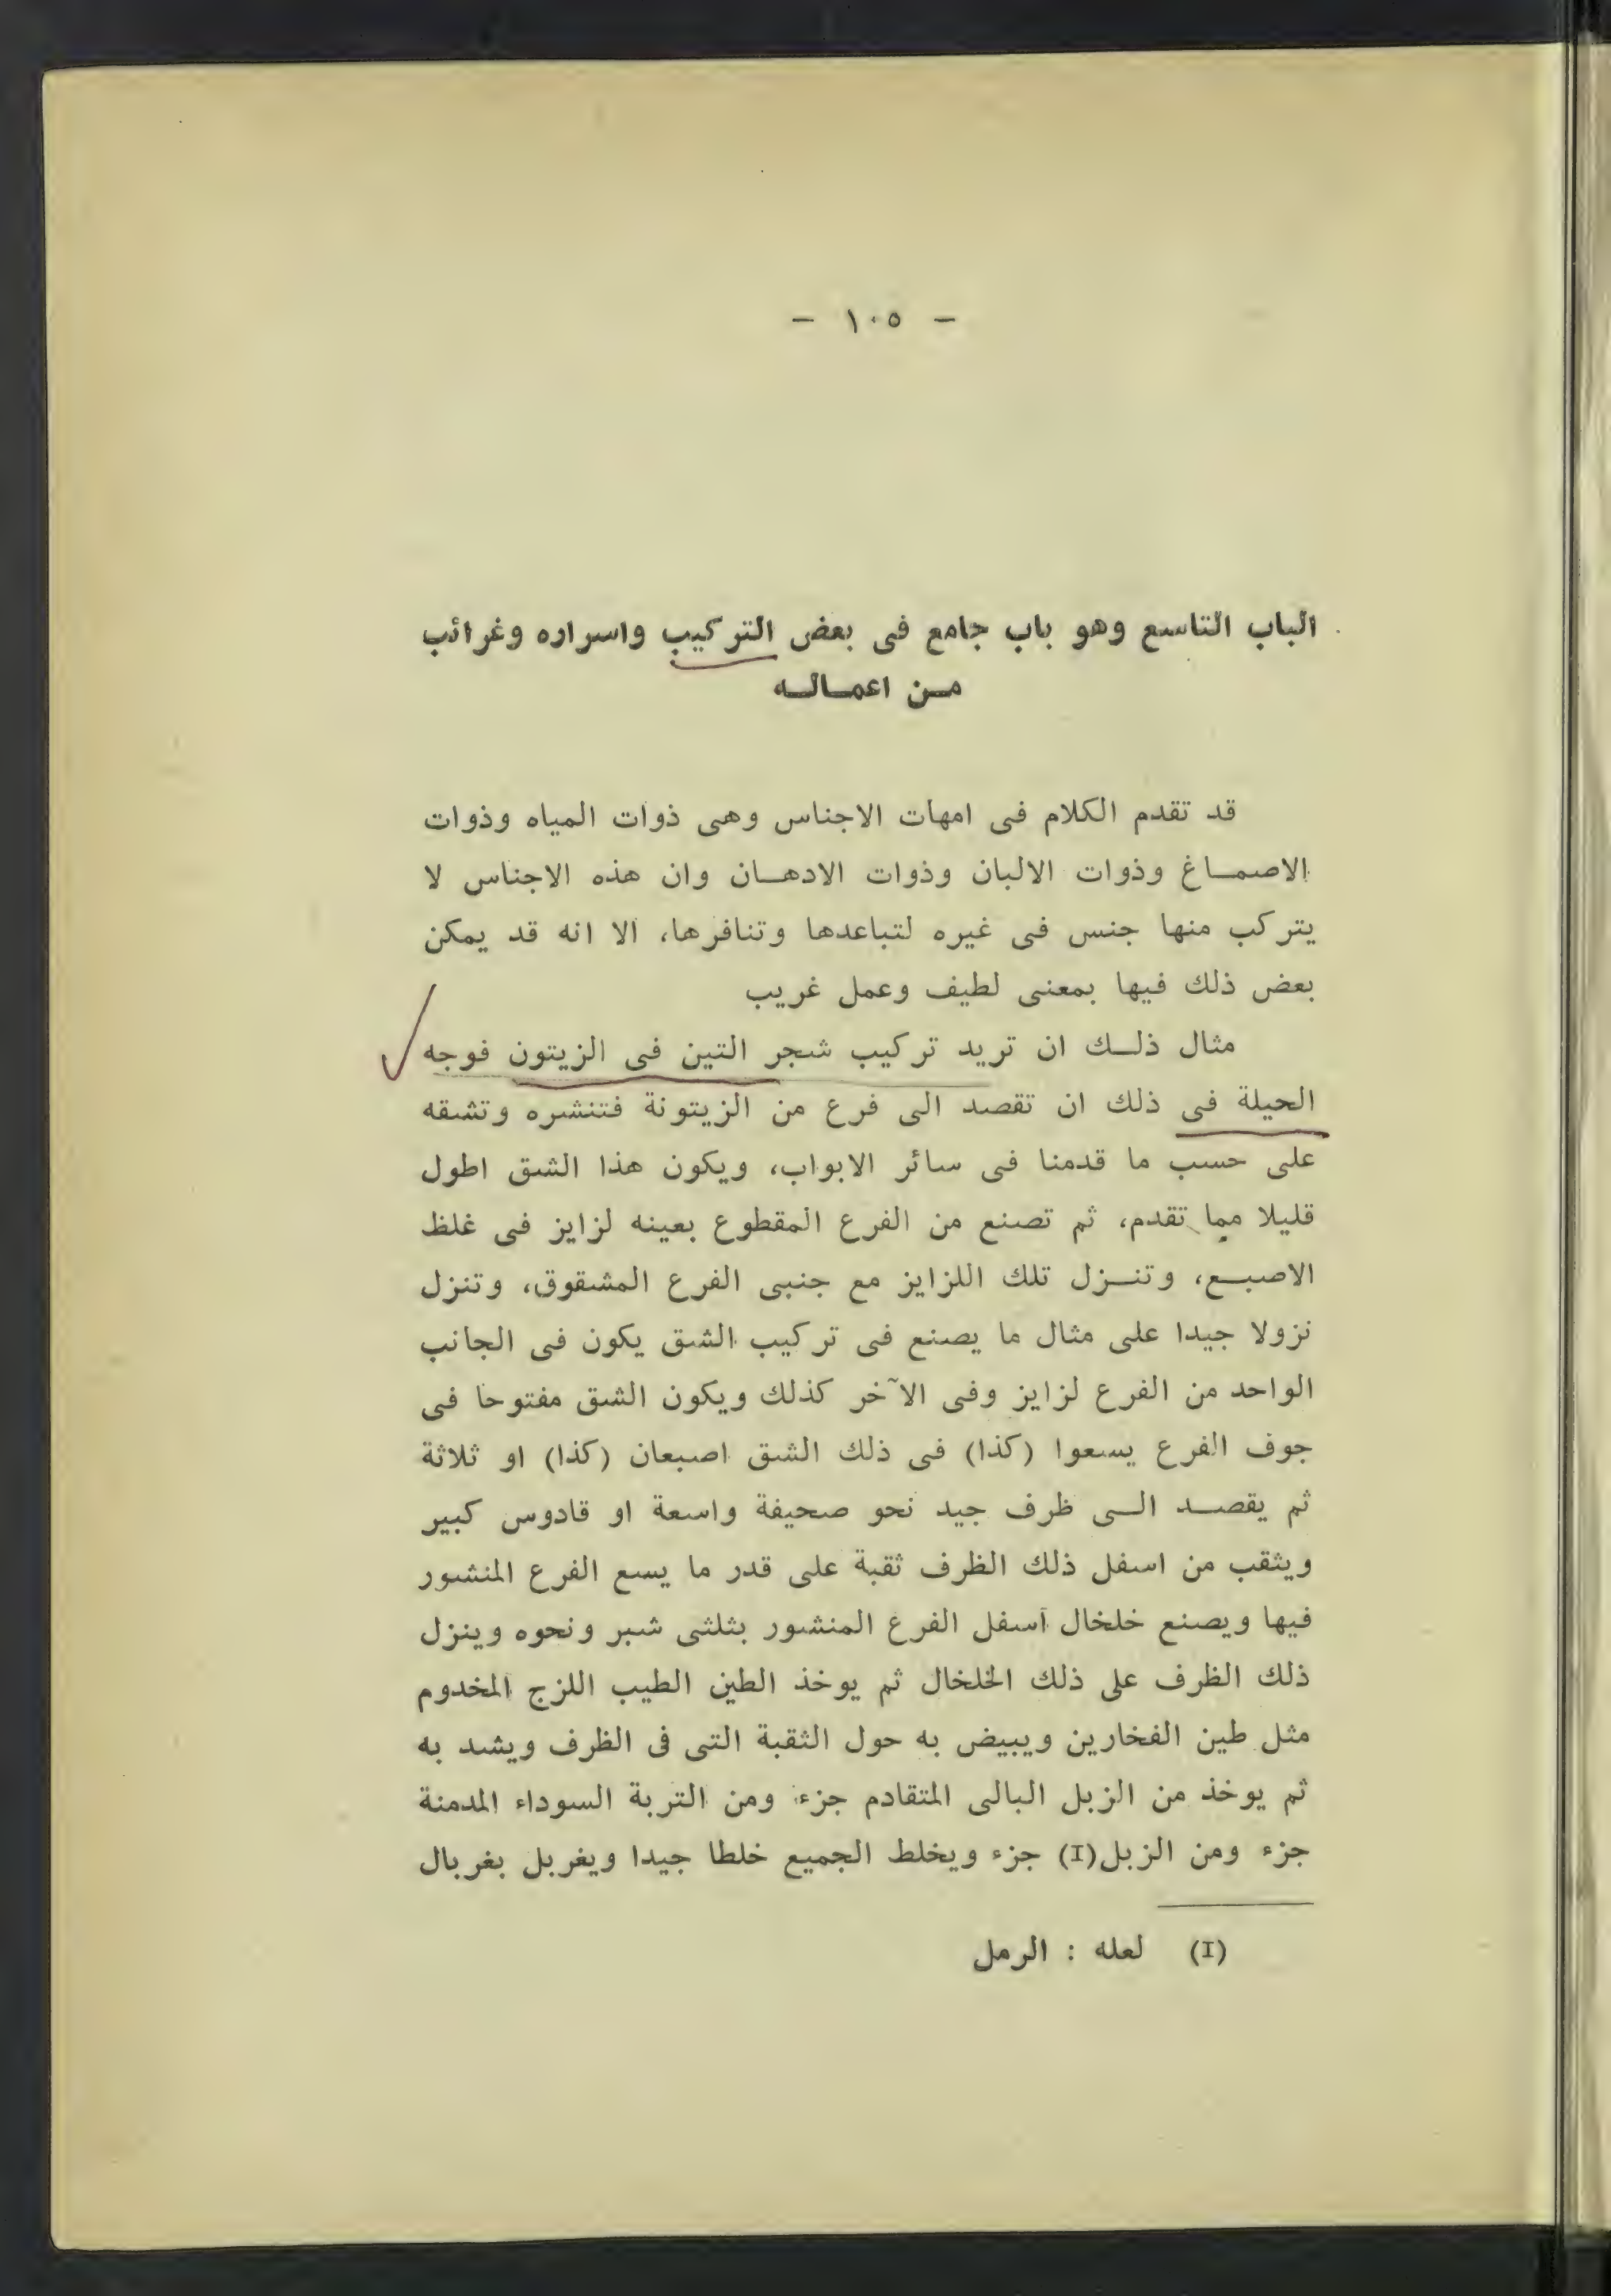 — ١٠٥ —
الباب التاسع وهو باب جامع فى بعض التركيب واسراره وغرائب
مـن اعمـالـه
قد تقدم الكلام فى امهات الاجناس وهى ذوات المياه وذوات
الاصمـاغ وذوات الالبان وذوات الادهـان وان هذه الاجناس لا
يتركب منها جنس فى غيره لتباعدها وتنافرها، الا انه قد يمكن
بعض ذلك فيها بمعنى لطيف وعمل غريب
مثال ذلـك ان تريد تركيب شجر التين فى الزيتون فوجه
الحيلة فى ذلك ان تقصد الى فرع من الزيتونة فتنشره وتشقه
على حسب ما قدمنا فى سائر الابواب، ويكون هذا الشق اطول
قليلا مما تقدم، ثم تصنع من الفرع المقطوع بعينه لزايز فى غلظ
الاصبـع، وتنـزل تلك اللزايز مع جنبى الفرع المشقوق، وتنزل
نزولا جيدا على مثال ما يصنع فى تركيب الشق يكون فى الجانب
الواحد من الفرع لزايز وفى الآخر كذلك ويكون الشق مفتوحا فى
جوف الفرع يسعوا (كذا) فى ذلك الشق اصبعان (كذا) او ثلاثة
ثم يقصـد الـى ظرف جيد نحو صحيفة واسعة او قادوس كبير
ويثقب من اسفل ذلك الظرف ثقبة على قدر ما يسع الفرع المنشور
فيها ويصنع خلخال أسفل الفرع المنشور بثلثى شبر ونحوه وينزل
ذلك الظرف على ذلك الخلخال ثم يوخذ الطين الطيب اللزج المخدوم
مثل طين الفخارين ويبيض به حول الثقبة التى فى الظرف ويشد به
ثم يوخذ من الزبل البالى المتقادم جزء ومن التربة السوداء المدمنة
جزء ومن الزبل(I) جزء ويخلط الجميع خلطا جيدا ويغربل بغربال
(I) لعله : الرمل